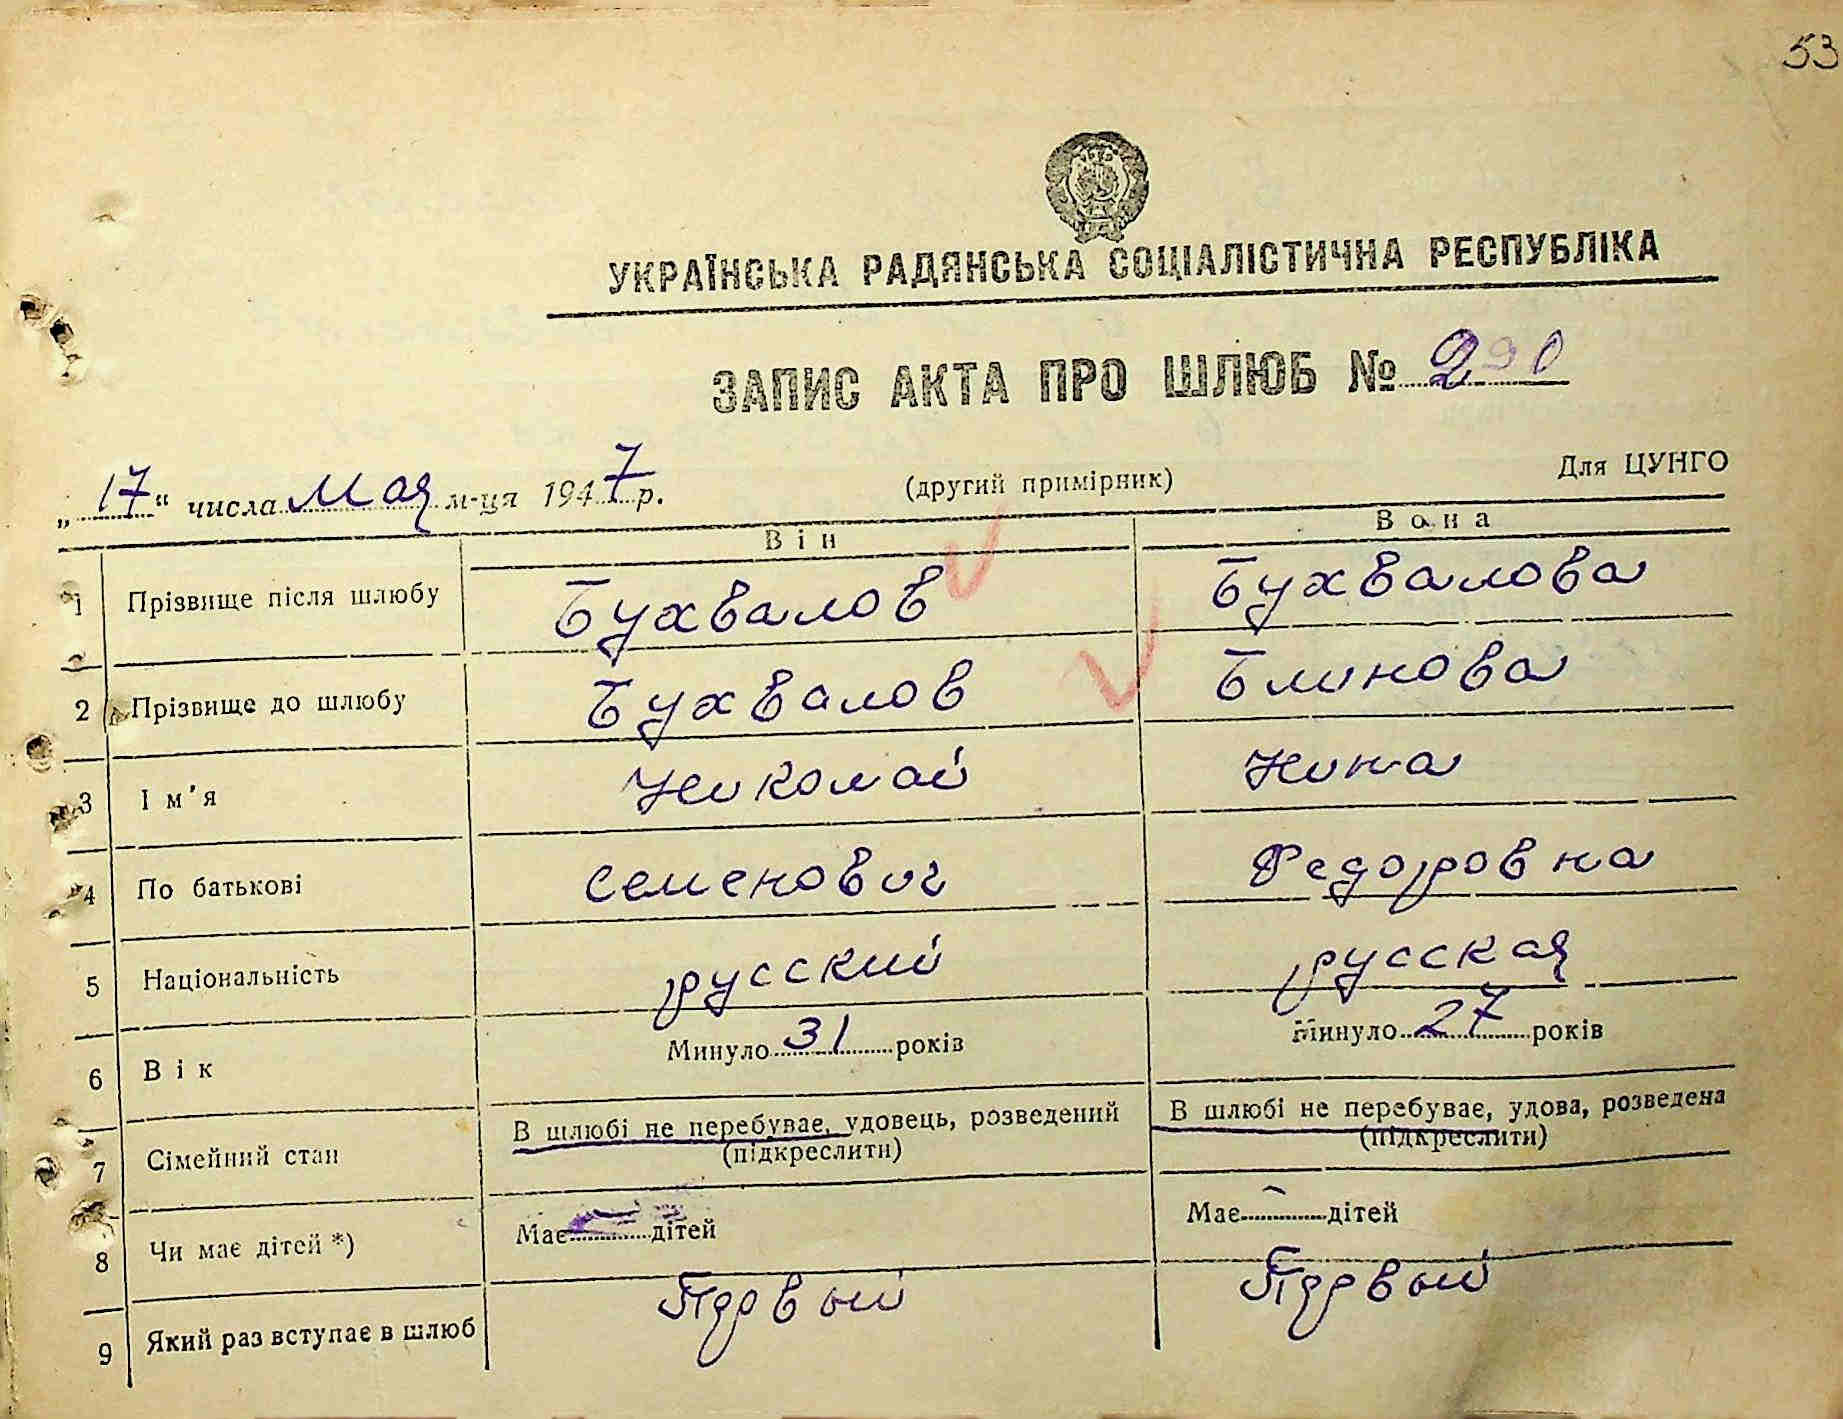 53
УКРАЇНСЬКА РАДЯНСЬКА СОЦІАЛІСТИЧНА РЕСПУБЛІКА
ЗАПИС АКТА ПРО ШЛЮБ № 290
„17“ числа Мая м-ця 1947 р. (другий примірник) Для ЦУНГО
Він Вона
1 Прізвище після шлюбу Бухвалов Бухвалова
2 Прізвище до шлюбу Бухвалов Блинова
3 Ім'я Николай Нина
4 По батькові Семенович Федоровна
5 Національність русский русская
6 Вік Минуло 31 років Минуло 27 років
7 Сімейний стан В шлюбі не перебуває, удовець, розведений (підкреслити) В шлюбі не перебуває, удова, розведена (підкреслити)
8 Чи має дітей *) Має дітей Має - дітей
9 Який раз вступає в шлюб Первый Первый